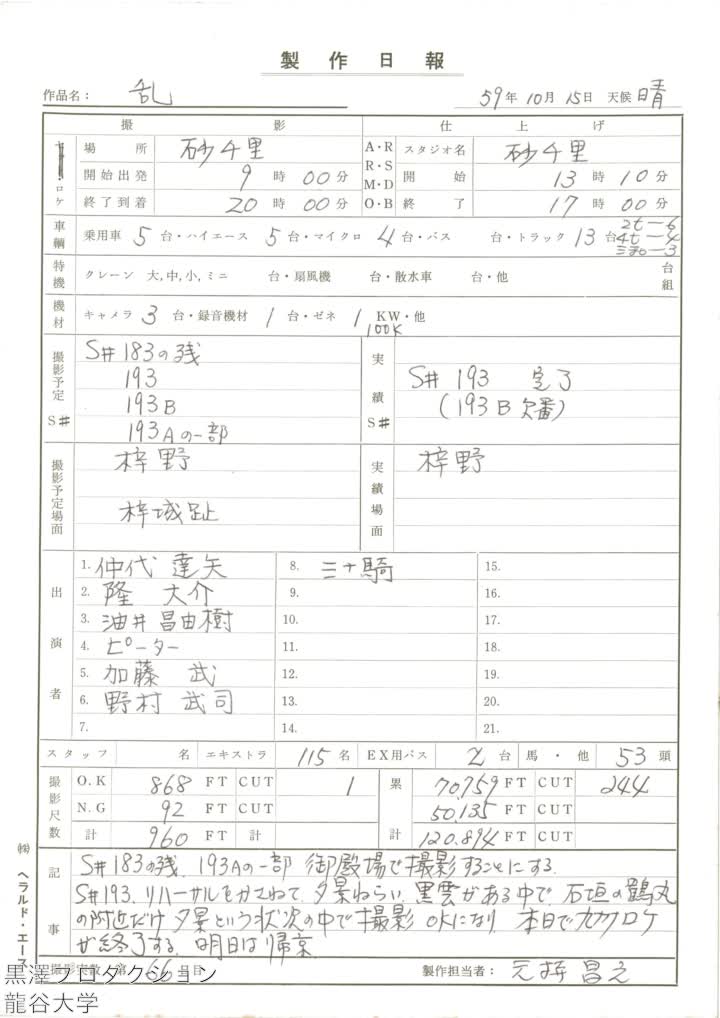 製作日報
作品名： 乱 59年10月15日 天候 晴
撮影 仕上げ
ロケ 場所 砂千里 A・R R・S M・D O・B スタジオ名 砂千里
開始出発 9時00分 開始 13時10分
終了到着 20時00分 終了 17時00分
車輌 乗用車 5台・ハイエース 5台・マイクロ 4台・バス 台・トラック 13台 2t－6 4t－4
特機 クレーン 大,中,小,ミニ 台・扇風機 台・散水車 台・他 台組
機材 キャメラ 3台・録音機材 1台・ゼネ 1 KW・他
100K
撮影予定 S# S#183の残 実績 S#
193 S# 193 完了
193B (193B欠番)
193Aの一部
撮影予定場面 梓野 実績場面 梓野
梓城趾
出演者
1. 仲代達矢 8. 三十騎 15.
2. 隆 大介 9. 16.
3. 油井昌由樹 10. 17.
4. ピーター 11. 18.
5. 加藤 武 12. 19.
6. 野村武司 13. 20.
7. 14. 21.
スタッフ 名 エキストラ 115名 EX用バス 2台 馬・他 53頭
撮影尺数 O.K 868 FT CUT 1 累計 70,759 FT CUT 244
N.G 92 FT CUT 50,135 FT CUT
計 960 FT 計 120,894 FT CUT
記事
S#183の残、193Aの一部 御殿場で撮影することにする。
S#193、リハーサルをかさねて、夕景ねらい、黒雲がある中で、石垣の鶴丸
の附近だけ夕景という状況の中で撮影 OKになり、本日で九州ロケ
が終了する。明日は帰京
撮影実数 第 66 日目 製作担当者：
㈱ヘラルド・エース
黒澤プロダクション
龍谷大学